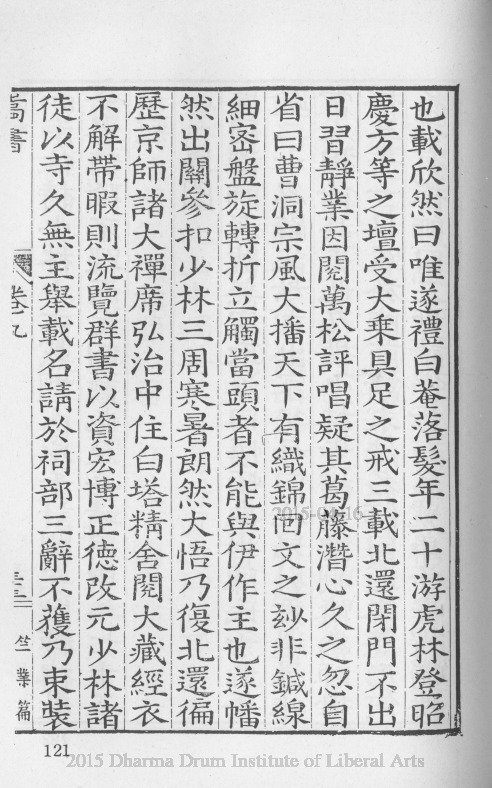 也載欣然曰唯遂禮白菴落髮年二十游虎林登昭
慶方等之壇受大乘具足之戒三載北還閉門不出
日習靜業因閱萬松評唱疑其葛藤潛心久之忽自
省曰曹洞宗風大播天下有織錦回文之玅非鍼線
細密盤旋轉折立觸當頭者不能與伊作主也遂幡
然出關參扣少林三周寒暑朗然大悟乃復北還徧
歷京師諸大禪席弘治中住白塔精舍閱大藏經衣
不解帶暇則流覽群書以資宏博正德改元少林諸
徒以寺久無主舉載名請於祠部三辭不獲乃束裝
嵩書
卷九
竺業篇
121
2015-04-16
2015 Dharma Drum Institute of Liberal Arts